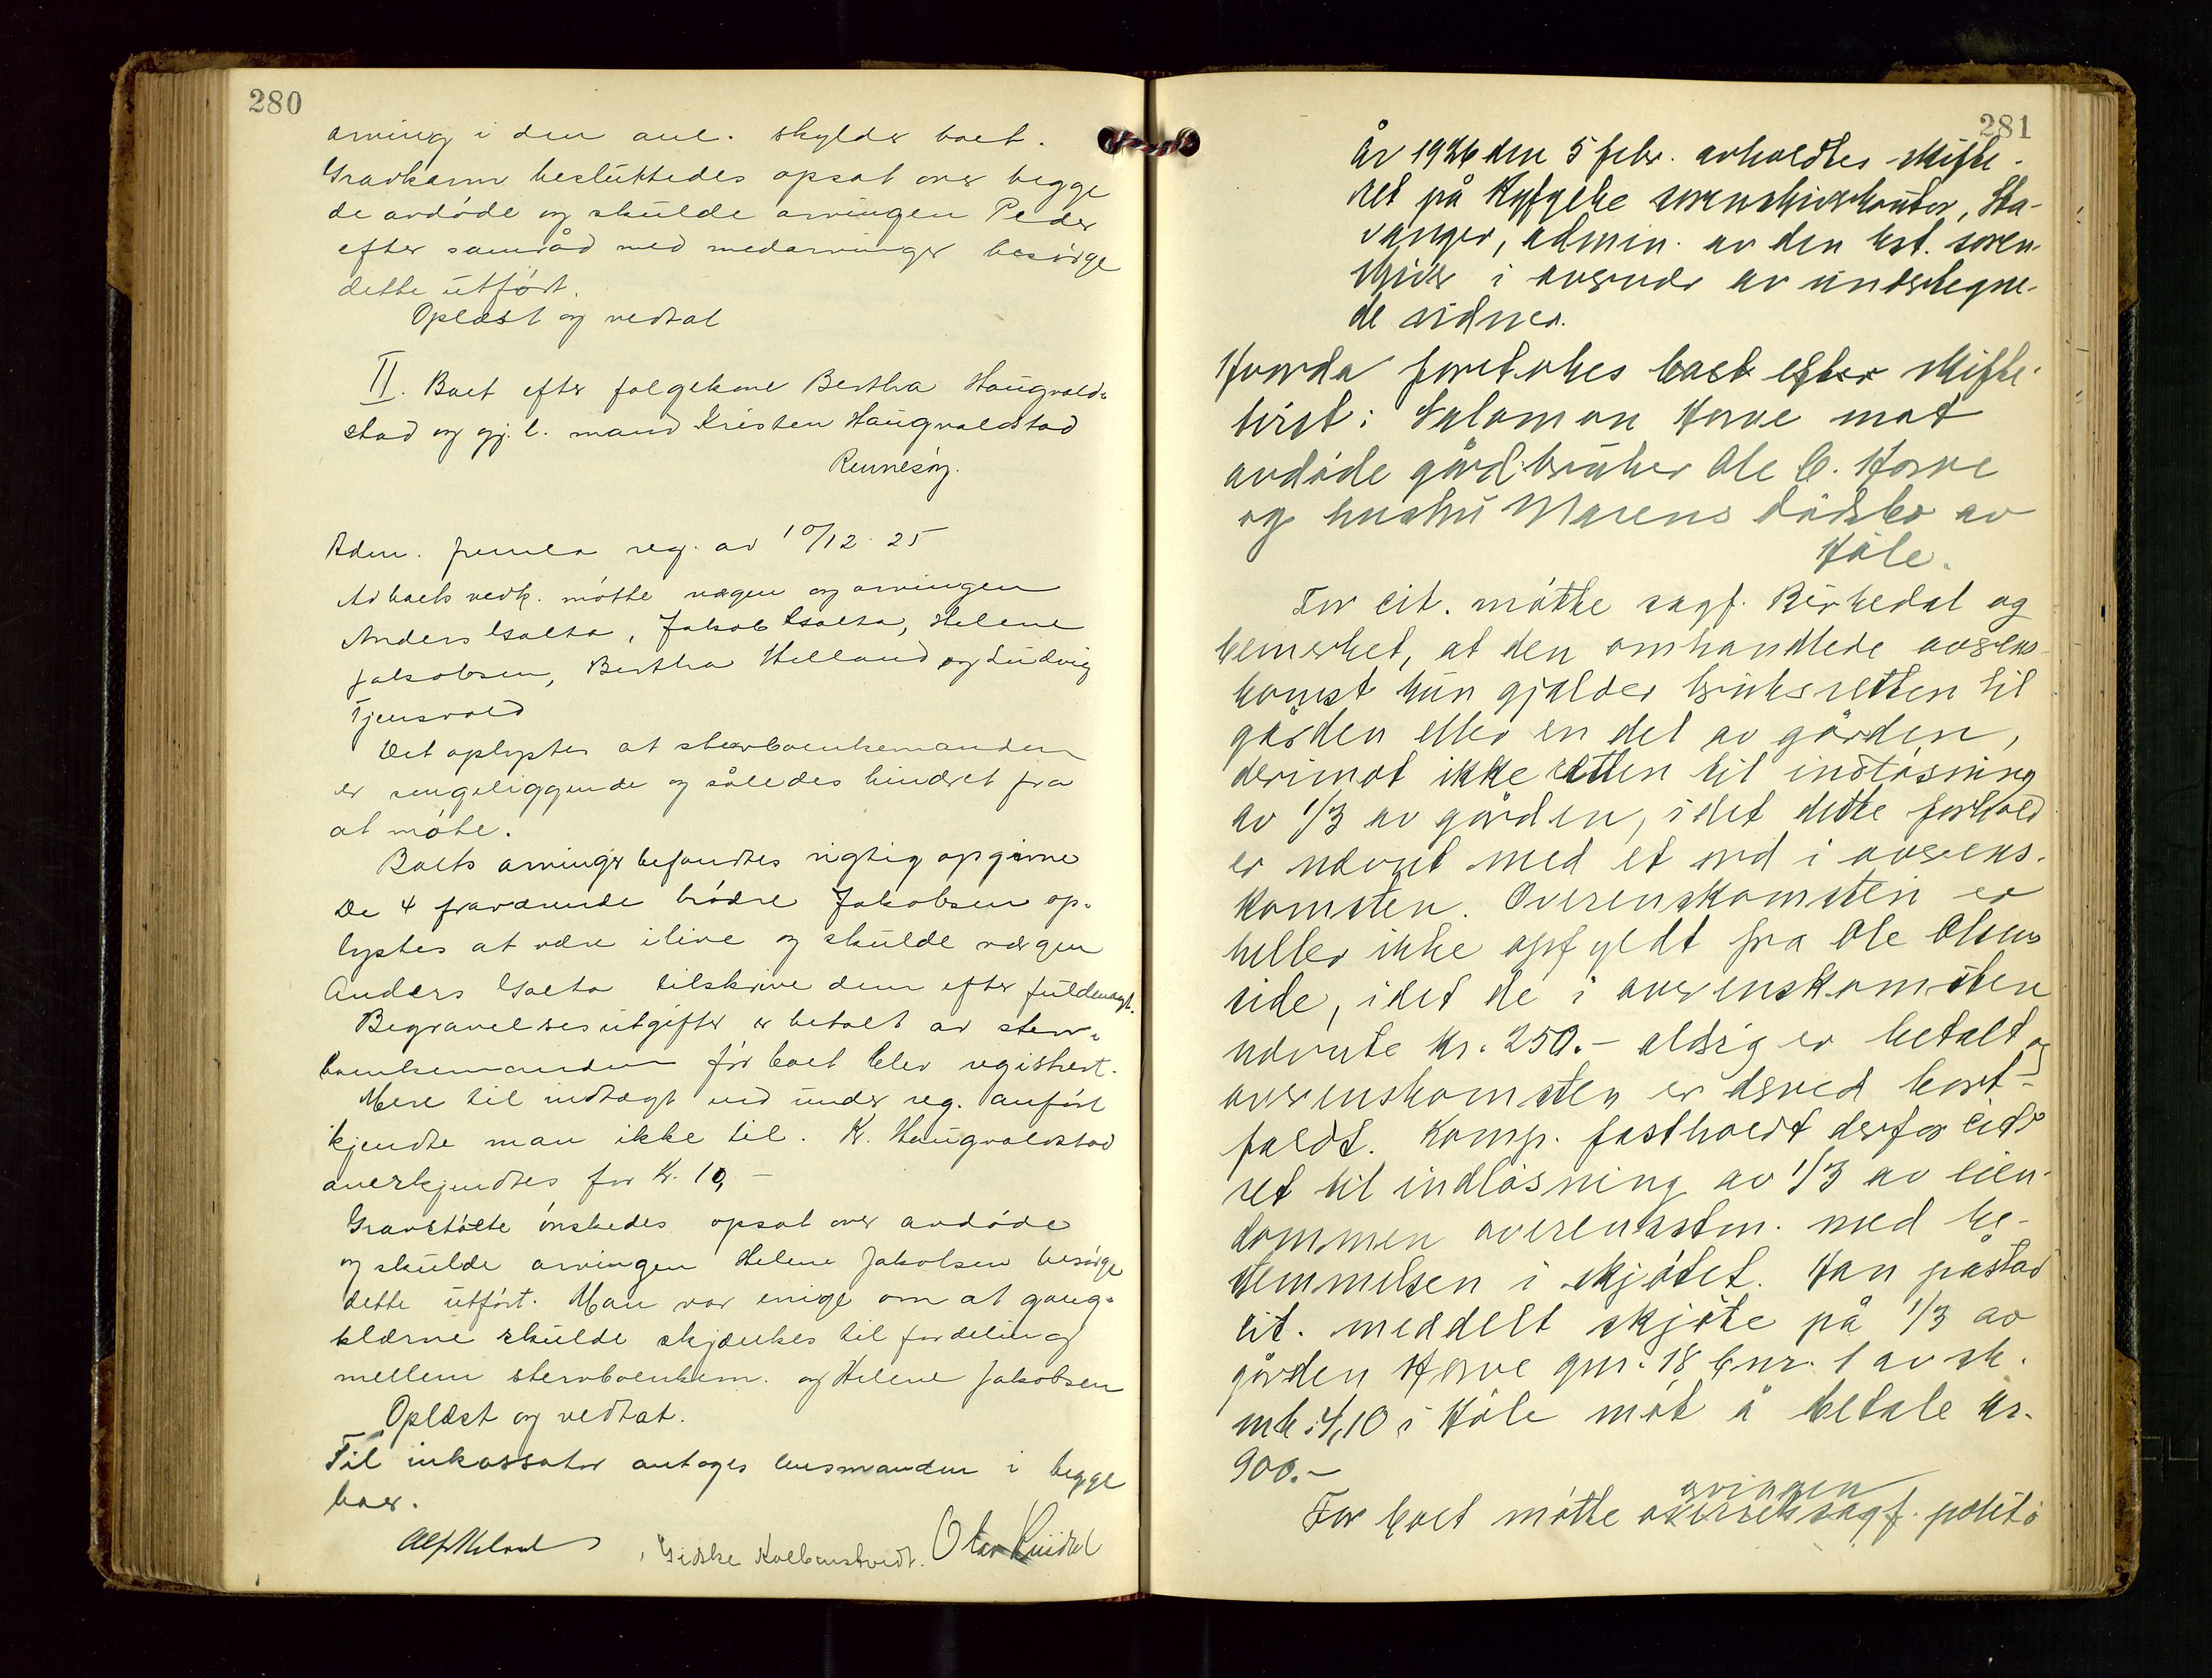 280
arving i den anl. skylder boet.
Gravkarm besluttedes opsat over begge
de avdøde og skulde arvingen Peder
efter samråd med medarvinger besørge
dette utført.
Oplæst og vedtat
II. Boet efter følgekone Bertha Haugvald-
stad og gj. l. mand Kristen Haugvaldstad
Rennesøy.
Adm. forrela reg. av 10/12 25
Av boets vedk. møtte vergen og arvingen
Anders Galta, Jakob Galta, Helene
Jakobsen, Bertha Helland og Ludvig
Tjensvold
Det oplystes at sterboenkemanden
er sengeliggende og således hindret fra
at møte.
Boets arvinger befandtes rigtig opgivne
De 4 fraværende brødre Jakobsen op-
lystes at være ilive og skulde vergen
Anders Galta tilskrive dem efter fuldmagt.
Begravelsesutgifter er betalt av sterv-
boenkemanden før boet blev registrert.
Mere til indtægt end under reg. anført
kjendte man ikke til. K. Haugvaldstad
anerkjendtes for Kr. 10,-
Gravstøtte ønskedes opsat over avdøde
og skulde arvingen Helene Jakobsen besørge
dette utført. Man var enige om at gang-
klærne skulde skjænkes til fordeling
mellem stervboenkem. og Helene Jakobsen
Oplæst og vedtat.
Til inkassator antoges lensmanden i begge
boer.
Gidske Kolbenstvedt.
281
År 1926 den 5 febr. avholdtes skifte-
ret på Ryfylke sorenskriverkontor, Sta-
vanger, admin. av den kst. soren-
skriver i overvær av undertegne-
de vidner.
Hvorda foretokes boet efter skifte-
tvist: Salomon Horve mot
avdøde gårdbruker Ole C. Horve
og hustru Marens dødsbo av
Høle.
For cit. møtte sagf. Birkedal og
bemerket, at den omhandlede overens-
komst kun gjælder bruksretten til
gården eller en del av gården,
derimot ikke retten til indløsning
av 1/3 av gården, idet dette forhold
er nævnt med et ord i overens-
komsten. Overenskomsten er
heller ikke opfyldt fra Ole Olsens
side, idet de i overenskomsten
nævnte kr. 250.- aldrig er betalt og
overenskomsten er derved bort-
faldt. Komp. fastholdt derfor cits
ret til indløsning av 1/3 av eien-
dommen overensstem. med be-
stemmelsen i skjøtet. Han påstod
cit. meddelt skjøte på 1/3 av
gården Horve gnr. 18 bnr. 1 av sk.
mk. 4,10 i Høle mot å betale kr.
900.-
arvingen
For boet møtte overretssagf. politi